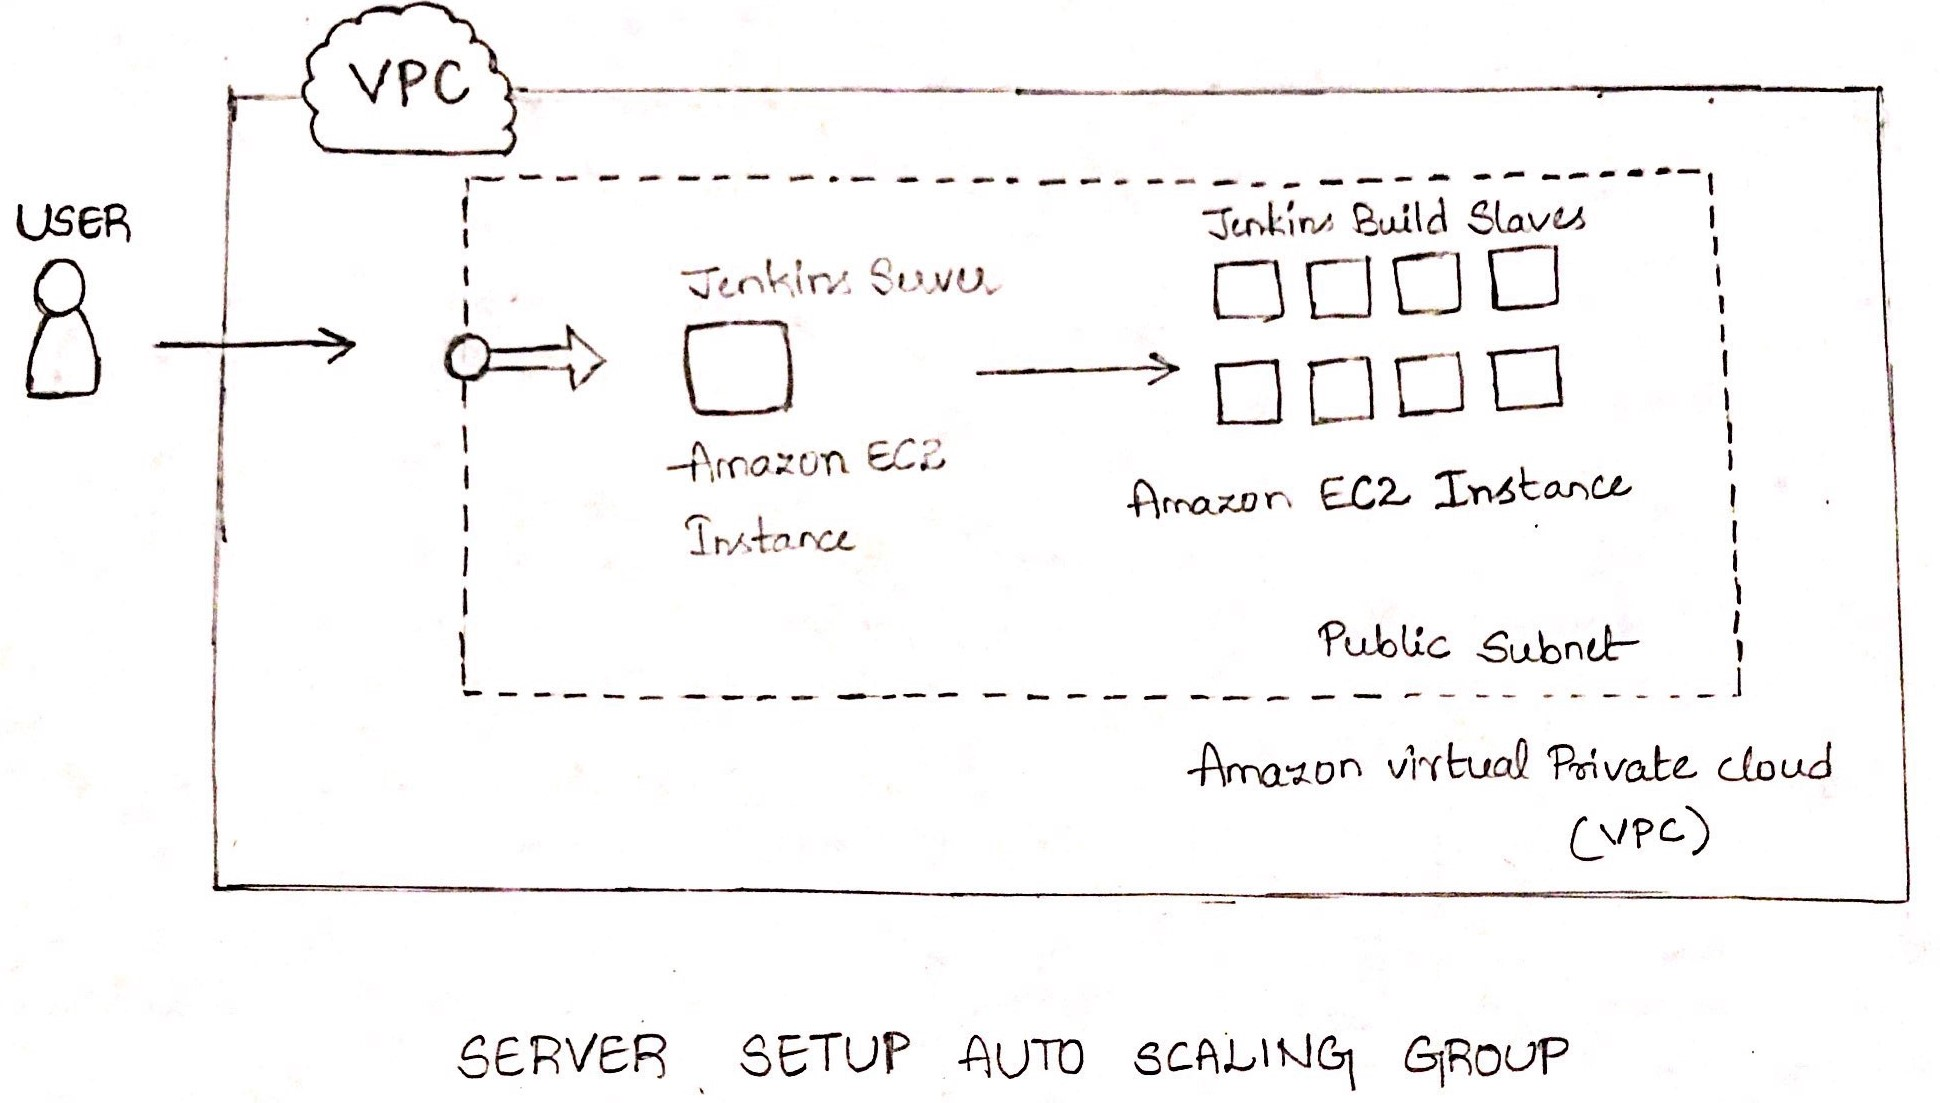 VPC
USER
Jenkins Server
Amazon EC2
Instance
Jenkins Build Slaves
Amazon EC2 Instance
Public Subnet
Amazon virtual Private cloud
(VPC)
SERVER SETUP AUTO SCALING GROUP